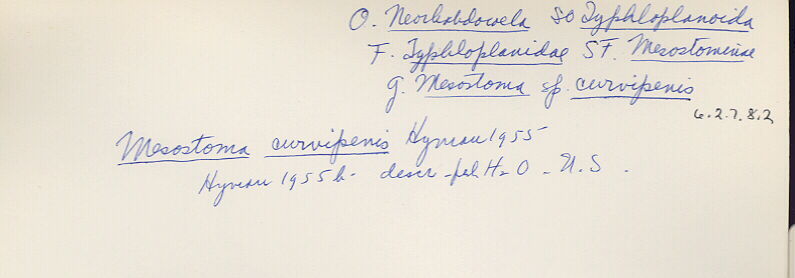 O. Neorhabdocoela SO Typhloplanoida
F. Typhloplanidae SF. Mesostominae
G. Mesostoma sp. curvipenis
6.2.7.8.2
Mesostoma curvipenis Hyman 1955
Hyman 1955b - descr - H2O - U.S.